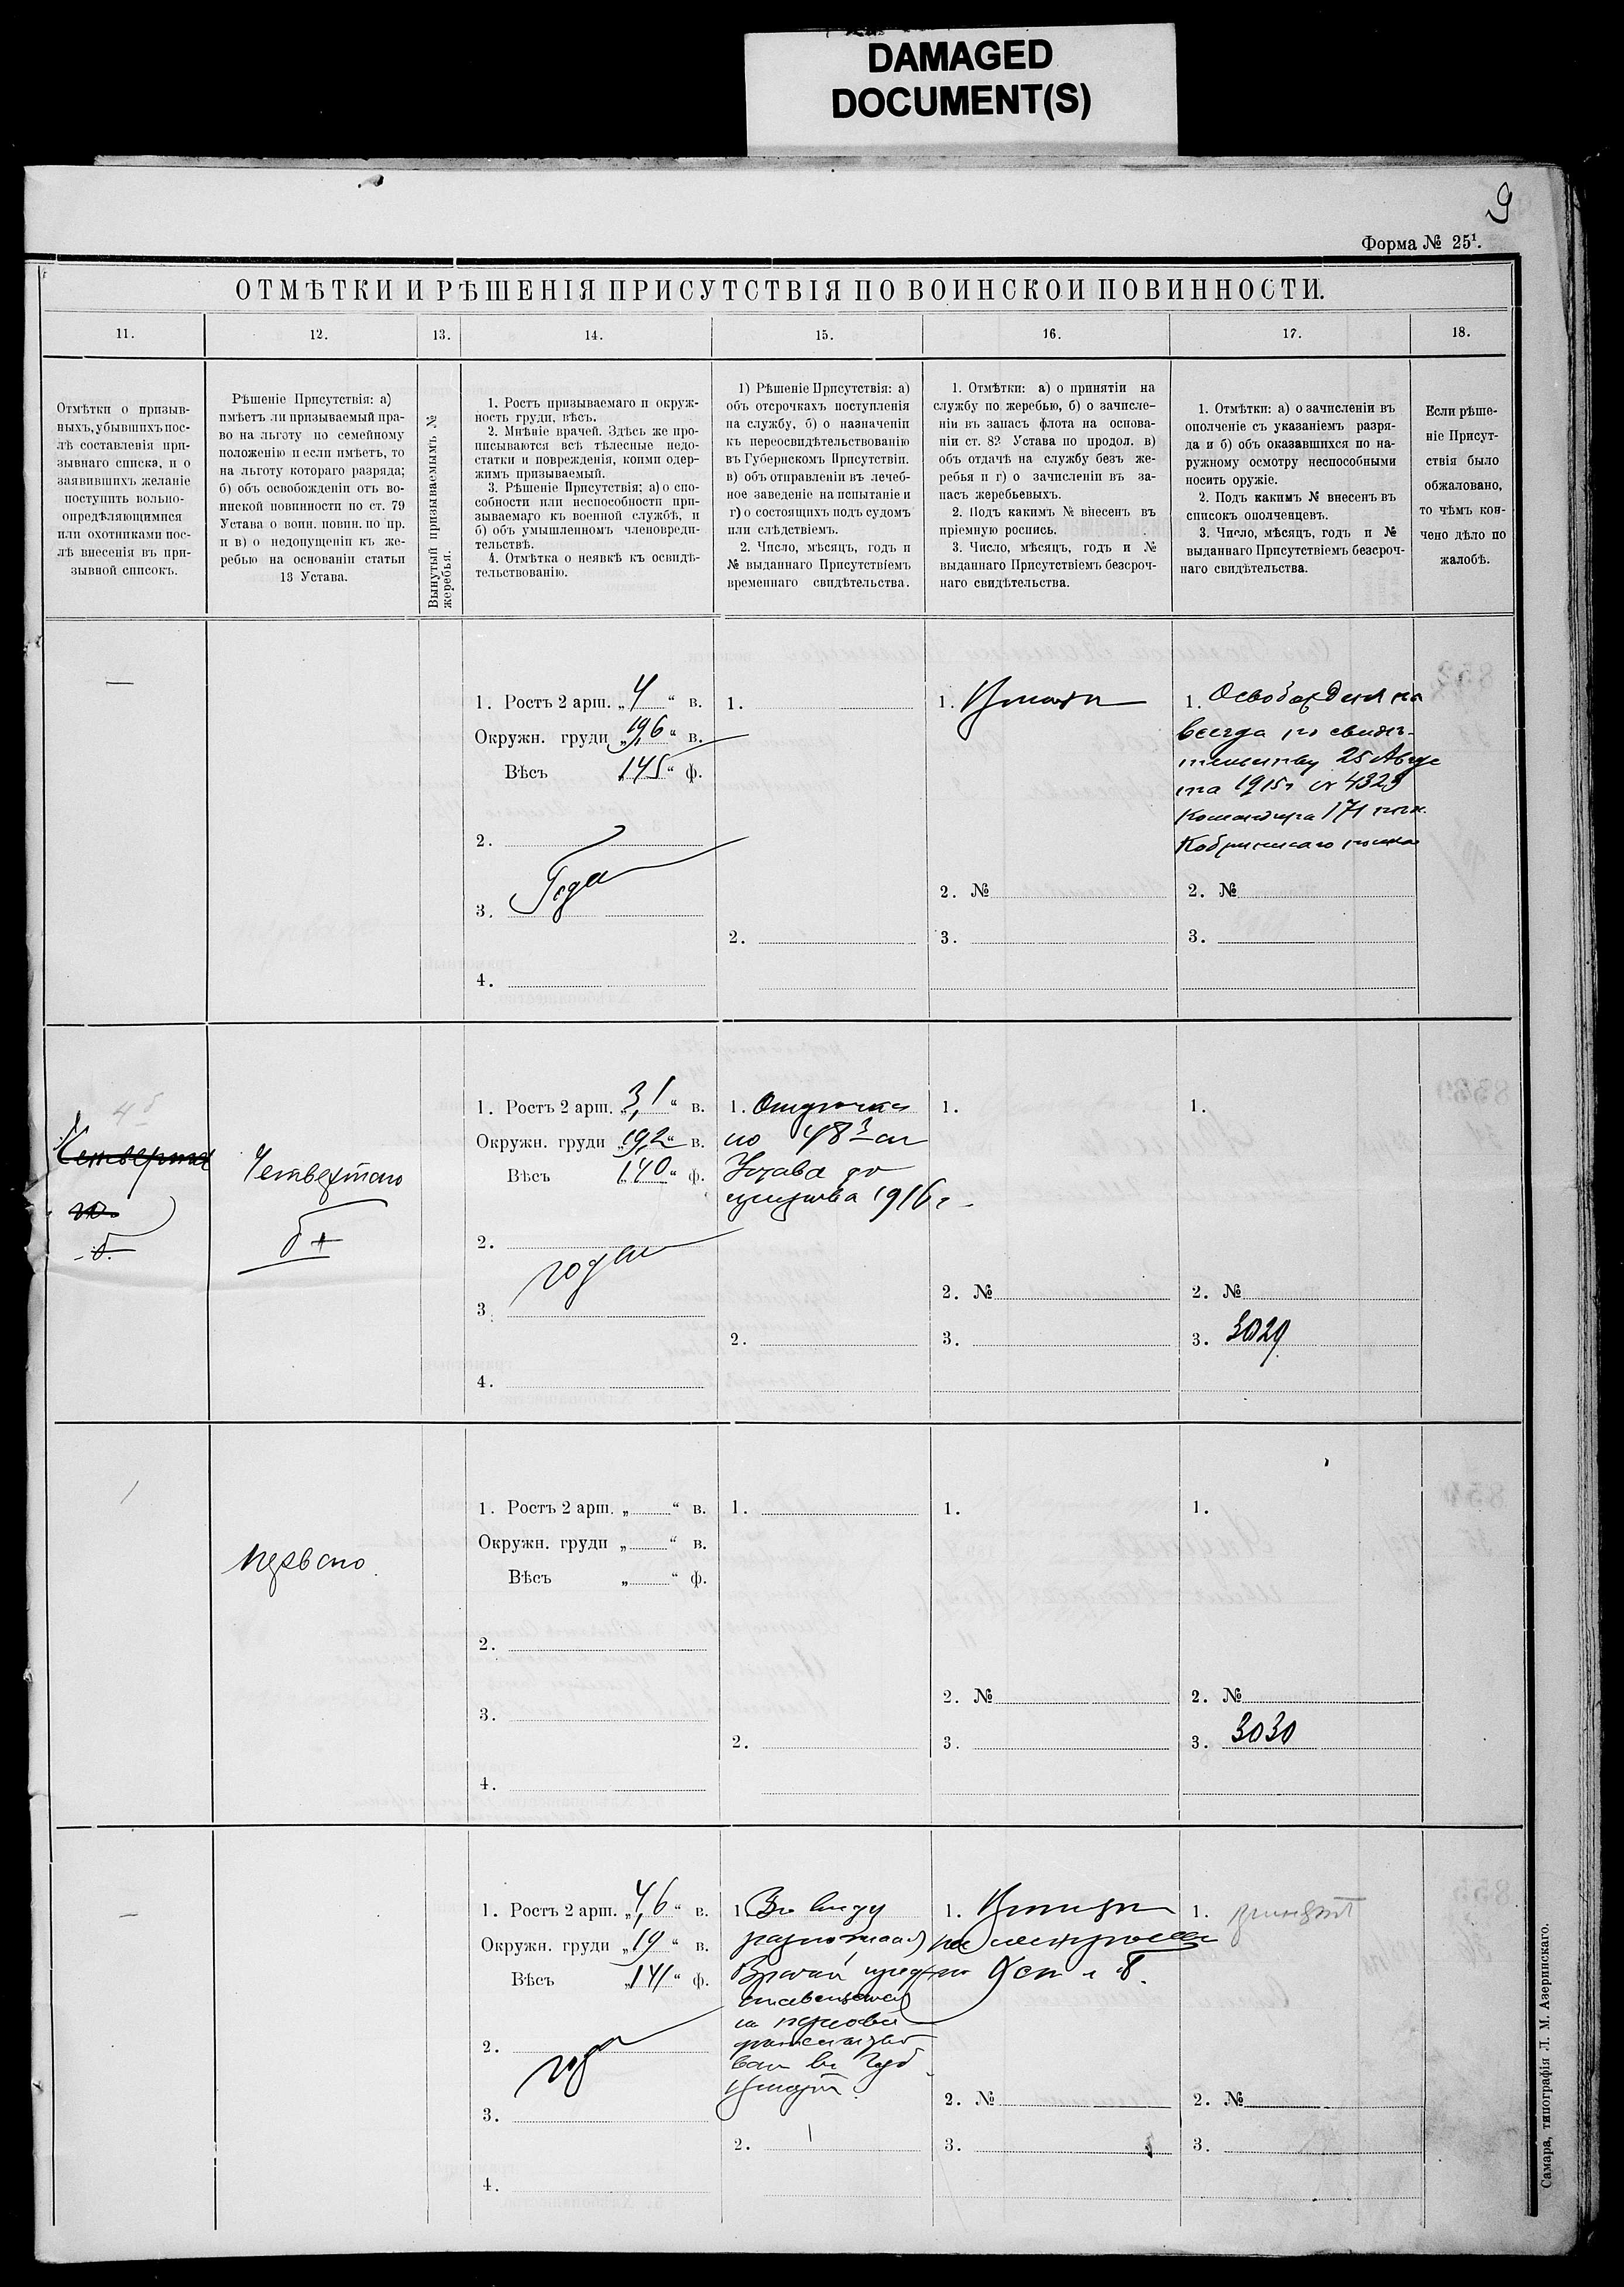 DAMAGED
DOCUMENT(S)
9
Форма № 25¹.
ОТМѢТКИ И РѢШЕНІЯ ПРИСУТСТВІЯ ПО ВОИНСКОЙ ПОВИННОСТИ.
11.
12.
13.
14.
15.
16.
17.
18.
Отмѣтки о призыв-
ныхъ, убывшихъ пос-
лѣ составленія при-
зывнаго списка, и о
заявившихъ желаніе
поступить вольно-
опредѣляющимися
или охотниками пос-
лѣ внесенія въ при-
зывной списокъ.
Рѣшеніе Присутствія: а)
имѣетъ ли призываемый пра-
во на льготу по семейному
положенію и если имѣетъ, то
на льготу котораго разряда;
б) объ освобожденіи отъ во-
инской повинности по ст. 79
Устава о воин. повин. по пр.
и в) о недопущеніи къ же-
ребью на основаніи статьи
13 Устава.
Вынутый призываемымъ №
жеребья.
1. Ростъ призываемаго и окруж-
ность груди, вѣсъ.
2. Мнѣніе врачей. Здѣсь же про-
писываются всѣ тѣлесные недо-
статки и поврежденія, коими одер-
жимъ призываемый.
3. Рѣшеніе Присутствія: а) о спо-
собности или неспособности при-
зываемаго къ военной службѣ, и
б) объ умышленномъ членовреди-
тельствѣ.
4. Отмѣтка о неявкѣ къ освидѣ-
тельствованію.
1) Рѣшеніе Присутствія: а)
объ отсрочкахъ поступленія
на службу, б) о назначеніи
къ переосвидѣтельствованію
въ Губернскомъ Присутствіи.
в) объ отправленіи въ лечеб-
ное заведеніе на испытаніе и
г) о состоящихъ подъ судомъ
или слѣдствіемъ.
2. Число, мѣсяцъ, годъ и
№ выданнаго Присутствіемъ
временнаго свидѣтельства.
1. Отмѣтки: а) о принятіи на
службу по жеребью, б) о зачисле-
ніи въ запасъ флота на основа-
ніи ст. 82 Устава по продол. в)
объ отдачѣ на службу безъ же-
ребья и г) о зачисленіи въ за-
пасъ жеребьевыхъ.
2. Подъ какимъ № внесенъ въ
пріемную роспись.
3. Число, мѣсяцъ, годъ и №
выданнаго Присутствіемъ безсроч-
наго свидѣтельства.
1. Отмѣтки: а) о зачисленіи въ
ополченіе съ указаніемъ разря-
да и б) объ оказавшихся по на-
ружному осмотру неспособными
носить оружіе.
2. Подъ какимъ № внесенъ въ
списокъ ополченцевъ.
3. Число, мѣсяцъ, годъ и №
выданнаго Присутствіемъ безсроч-
наго свидѣтельства.
Если рѣше-
ніе Присут-
ствія было
обжаловано,
то чѣмъ кон-
чено дѣло по
жалобѣ.
—
1. Ростъ 2 арш. „4“ в.
Окружн. груди „19,6“ в.
Вѣсъ „145“ ф.
2.
3. Годен
4.
1.
2.
1. Принятъ
2. №
3.
1. Освобожден на
всегда по свидѣ-
тельству 25 Авгус
та 1915 г № 4323
Командира 171 пех.
Кобринскаго полка
2. №
3.
4 б
Четвертаго
б.
Четвертаго
б
1. Ростъ 2 арш. „3,1“ в.
Окружн. груди „19,2“ в.
Вѣсъ „140“ ф.
2.
годен
3.
4.
1. Отсрочка
по 48 3 ст
Устава до
призыва 1916 г
2.
1.
2. №
3.
1.
2. №
3. 3029
перваго.
1. Ростъ 2 арш. „ “ в.
Окружн. груди „ “ в.
Вѣсъ „ “ ф.
2.
3.
4.
1.
2.
1.
2. №
3.
1.
2. №
3. 3030
—
1. Ростъ 2 арш. „4,6“ в.
Окружн. груди „19“ в.
Вѣсъ „141“ ф.
2.
годен
3.
4.
1. Въ виду
разногласія
Врачей
въ Губ
2.
1. Принятъ
2. №
3.
1. принятъ
2. №
3.
Самара, типографія Л. М. Азеринскаго.